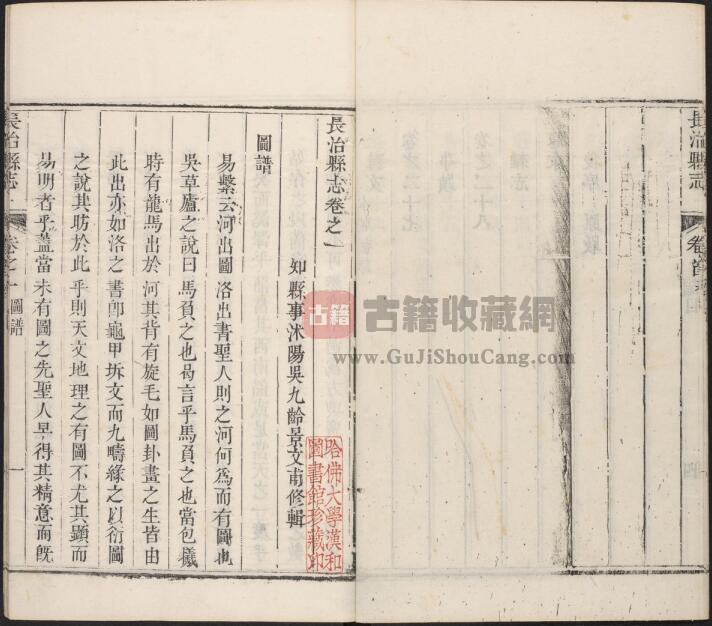 長治縣志
長治縣志卷之一
知縣事沭陽吳九齡景文甫修輯
圖譜
易繫云河出圖洛出書聖人則之河何爲而有圖也
吳草廬之說曰馬負之也曷言乎馬負之也當包犧
時有龍馬出於河其背有旋毛如圖卦畫之生皆由
此出亦如洛之書卽龜甲坼文而九疇緣之以衍圖
之說其昉於此乎則天文地理之有圖不尤其顯而
易明者乎蓋當未有圖之先聖人早得其精意而旣
長治縣志
卷之一
圖譜
一
哈佛大學漢和
圖書館珍藏印
古籍
古籍收藏網
www.GuJiShouCang.com